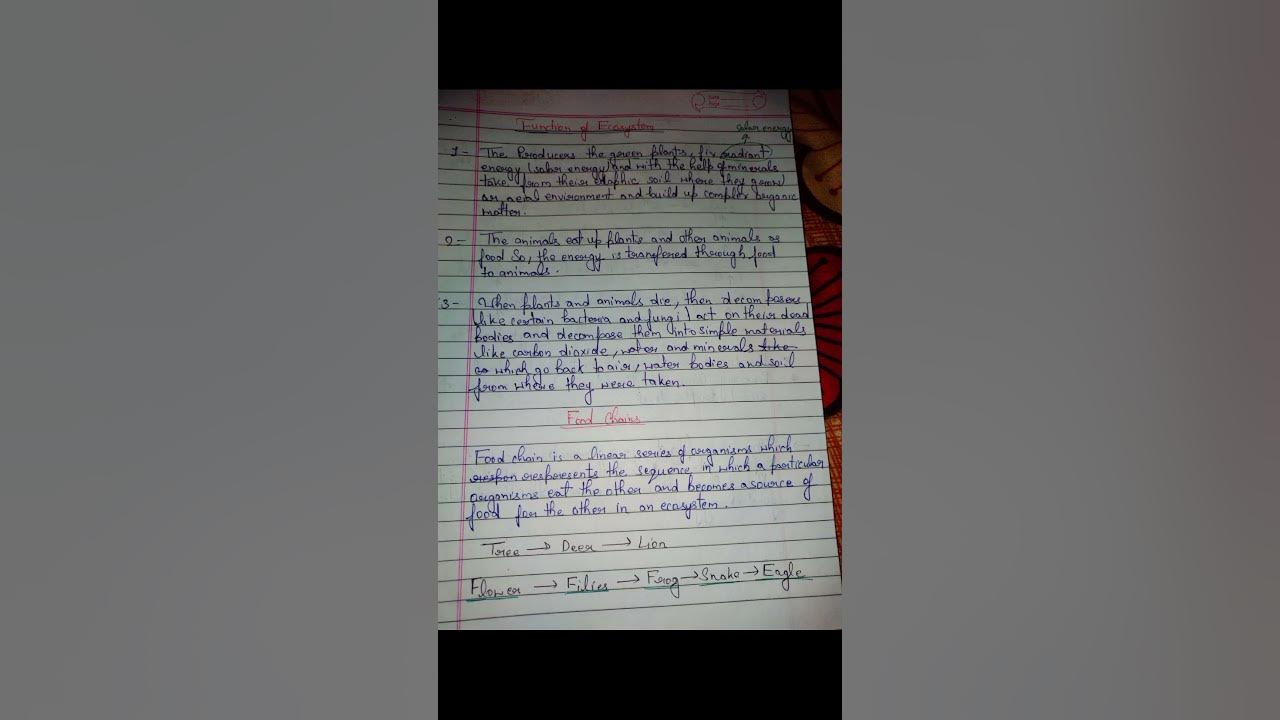 Function of Ecosystem
solar energy
1- The Producers the green plants, fix radiant
energy (solar energy) and with the help of minerals
take from their edaphic soil where they grow
or aerial environment and build up complex organic
matter.
2- The animals eat up plants and other animals as
food So, the energy is transfered through food
to animals.
3- When plants and animals die, then decomposers
(like certain bacteria and fungi) act on their dead
bodies and decompose them into simple materials
like carbon dioxide, water and minerals
which go back to air, water bodies and soil
from where they were taken.
Food Chains
Food chain is a linear series of organisms which
respresents the sequence in which a particular
organisms eat the other and becomes a source of
food for the other in an ecosystem.
Tree → Deer → Lion
Flower → → Frog → Snake → Eagle